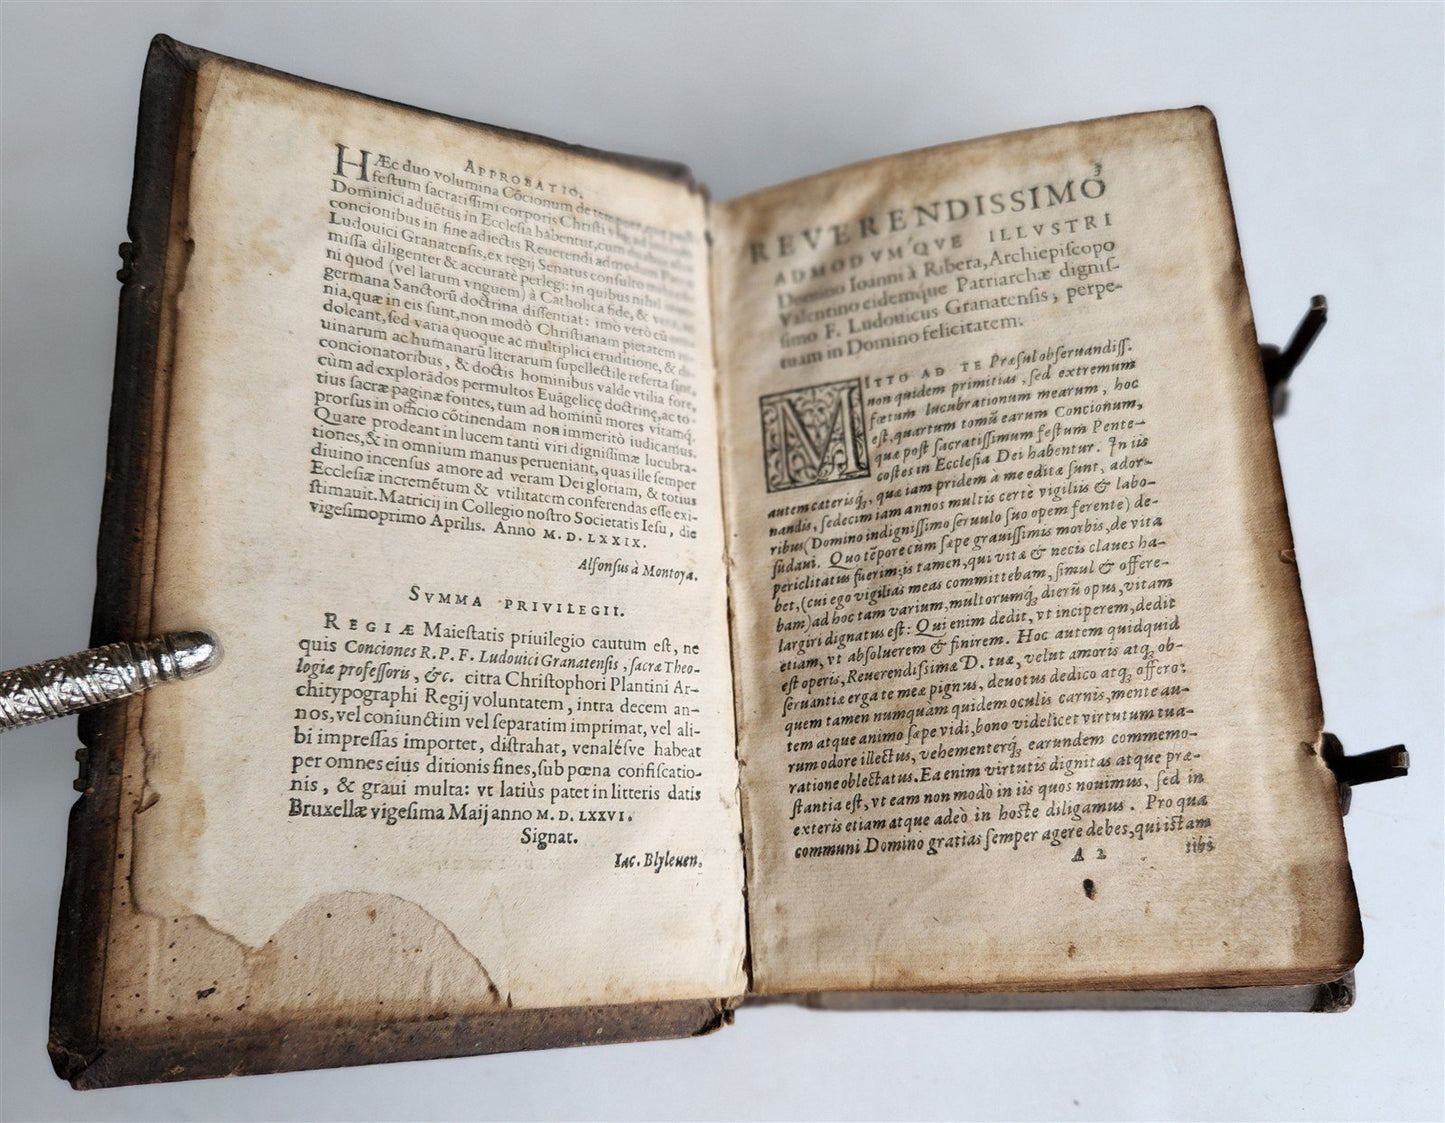 APPROBATIO.
HÆc duo volumina Cōcionum de tempore, quæ post
festum sacratissimi corporis Christi vsque ad
Dominici aduētus in Ecclesia habentur, cum
concionibus in fine adiectis Reuerendi admodum Patris
Ludouici Granatensis, ex regij Senatus consulto mihi
missa diligenter & accuratè perlegi: in quibus nihil
ni quod (vel latum vnguem) à Catholica fide, & vera,
germana Sanctorū doctrina dissentiat: imo verò cū
nia, quæ in eis sunt, non modò Christianam pietatem
doleant, sed varia quoque ac multiplici eruditione, & di-
uinarum ac humanarū literarum supellectile referta sint,
concionatoribus, & doctis hominibus valde vtilia fore,
cùm ad explorādos permultos Euāgelicę doctrinę, ac to-
tius sacræ paginæ fontes, tum ad hominū mores vitamq́.
prorsus in officio cōtinendam non immeritò iudicamus.
Quare prodeant in lucem tanti viri dignissimæ lucubra-
tiones, & in omnium manus perueniant, quas ille semper
diuino incensus amore ad veram Dei gloriam, & totius
Ecclesiæ incremētum & vtilitatem conferendas esse exi-
stimauit. Matricij in Collegio nostro Societatis Iesu, die
vigesimoprimo Aprilis. Anno M. D. LXXIX.
Alfonsus à Montoya.
SVMMA PRIVILEGII.
REGIÆ Maiestatis priuilegio cautum est, ne
quis Conciones R. P. F. Ludouici Granatensis, sacræ Theo-
logiæ professoris, &c. citra Christophori Plantini Ar-
chitypographi Regij voluntatem, intra decem an-
nos, vel coniunctim vel separatim imprimat, vel ali-
bi impressas importet, distrahat, venalésve habeat
per omnes eius ditionis fines, sub pœna confiscatio-
nis, & graui multa: vt latiùs patet in litteris datis
Bruxellæ vigesima Maij anno M. D. LXXVI.
Signat.
Iac. Blyleuen.
3
REVERENDISSIMO
ADMODVM'QVE ILLVSTRI
Domino Ioanni à Ribera, Archiepiscopo
Valentino eidemque Patriarchæ dignis-
simo F. Ludouicus Granatensis, perpe-
tuam in Domino felicitatem.
MITTO AD TE Præsul obseruandiss.
non quidem primitias, sed extremum
fœtum lucubrationum mearum, hoc
est, quartum tomū earum Concionum,
quæ post sacratissimum festum Pente-
costes in Ecclesia Dei habentur. In iis
autem caterisq́, quæ iam pridem à me editæ sunt, ador-
nandis, sedecim iam annos multis certe vigiliis & labo-
ribus (Domino indignissimo seruulo suo opem ferente) de-
sudaui. Quo tēpore cùm sæpe grauissimis morbis, de vita
periclitatus fuerim; is tamen, qui vitæ & necis claues ha-
bet, (cui ego vigilias meas committebam, simul & offere-
bam) ad hoc tam varium, multorumq́, dierū opus, vitam
largiri dignatus est: Qui enim dedit, vt inciperem, dedit
etiam, vt absoluerem & finirem. Hoc autem quidquid
est operis, Reuerendissimæ D. tuæ, velut amoris atq́, ob-
seruantiæ erga te meæ pignus, deuotus dedico atq́, offero:
quem tamen numquàm quidem oculis carnis, mente au-
tem atque animo sæpe vidi, bono videlicet virtutum tua-
rum odore illectus, vehementerq́, earundem commemo-
ratione oblectatus. Ea enim virtutis dignitas atque præ-
stantia est, vt eam non modò in iis quos nouimus, sed in
exteris etiam atque adeò in hoste diligamus. Pro qua
communi Domino gratias semper agere debes, qui istam
A 2 tibi